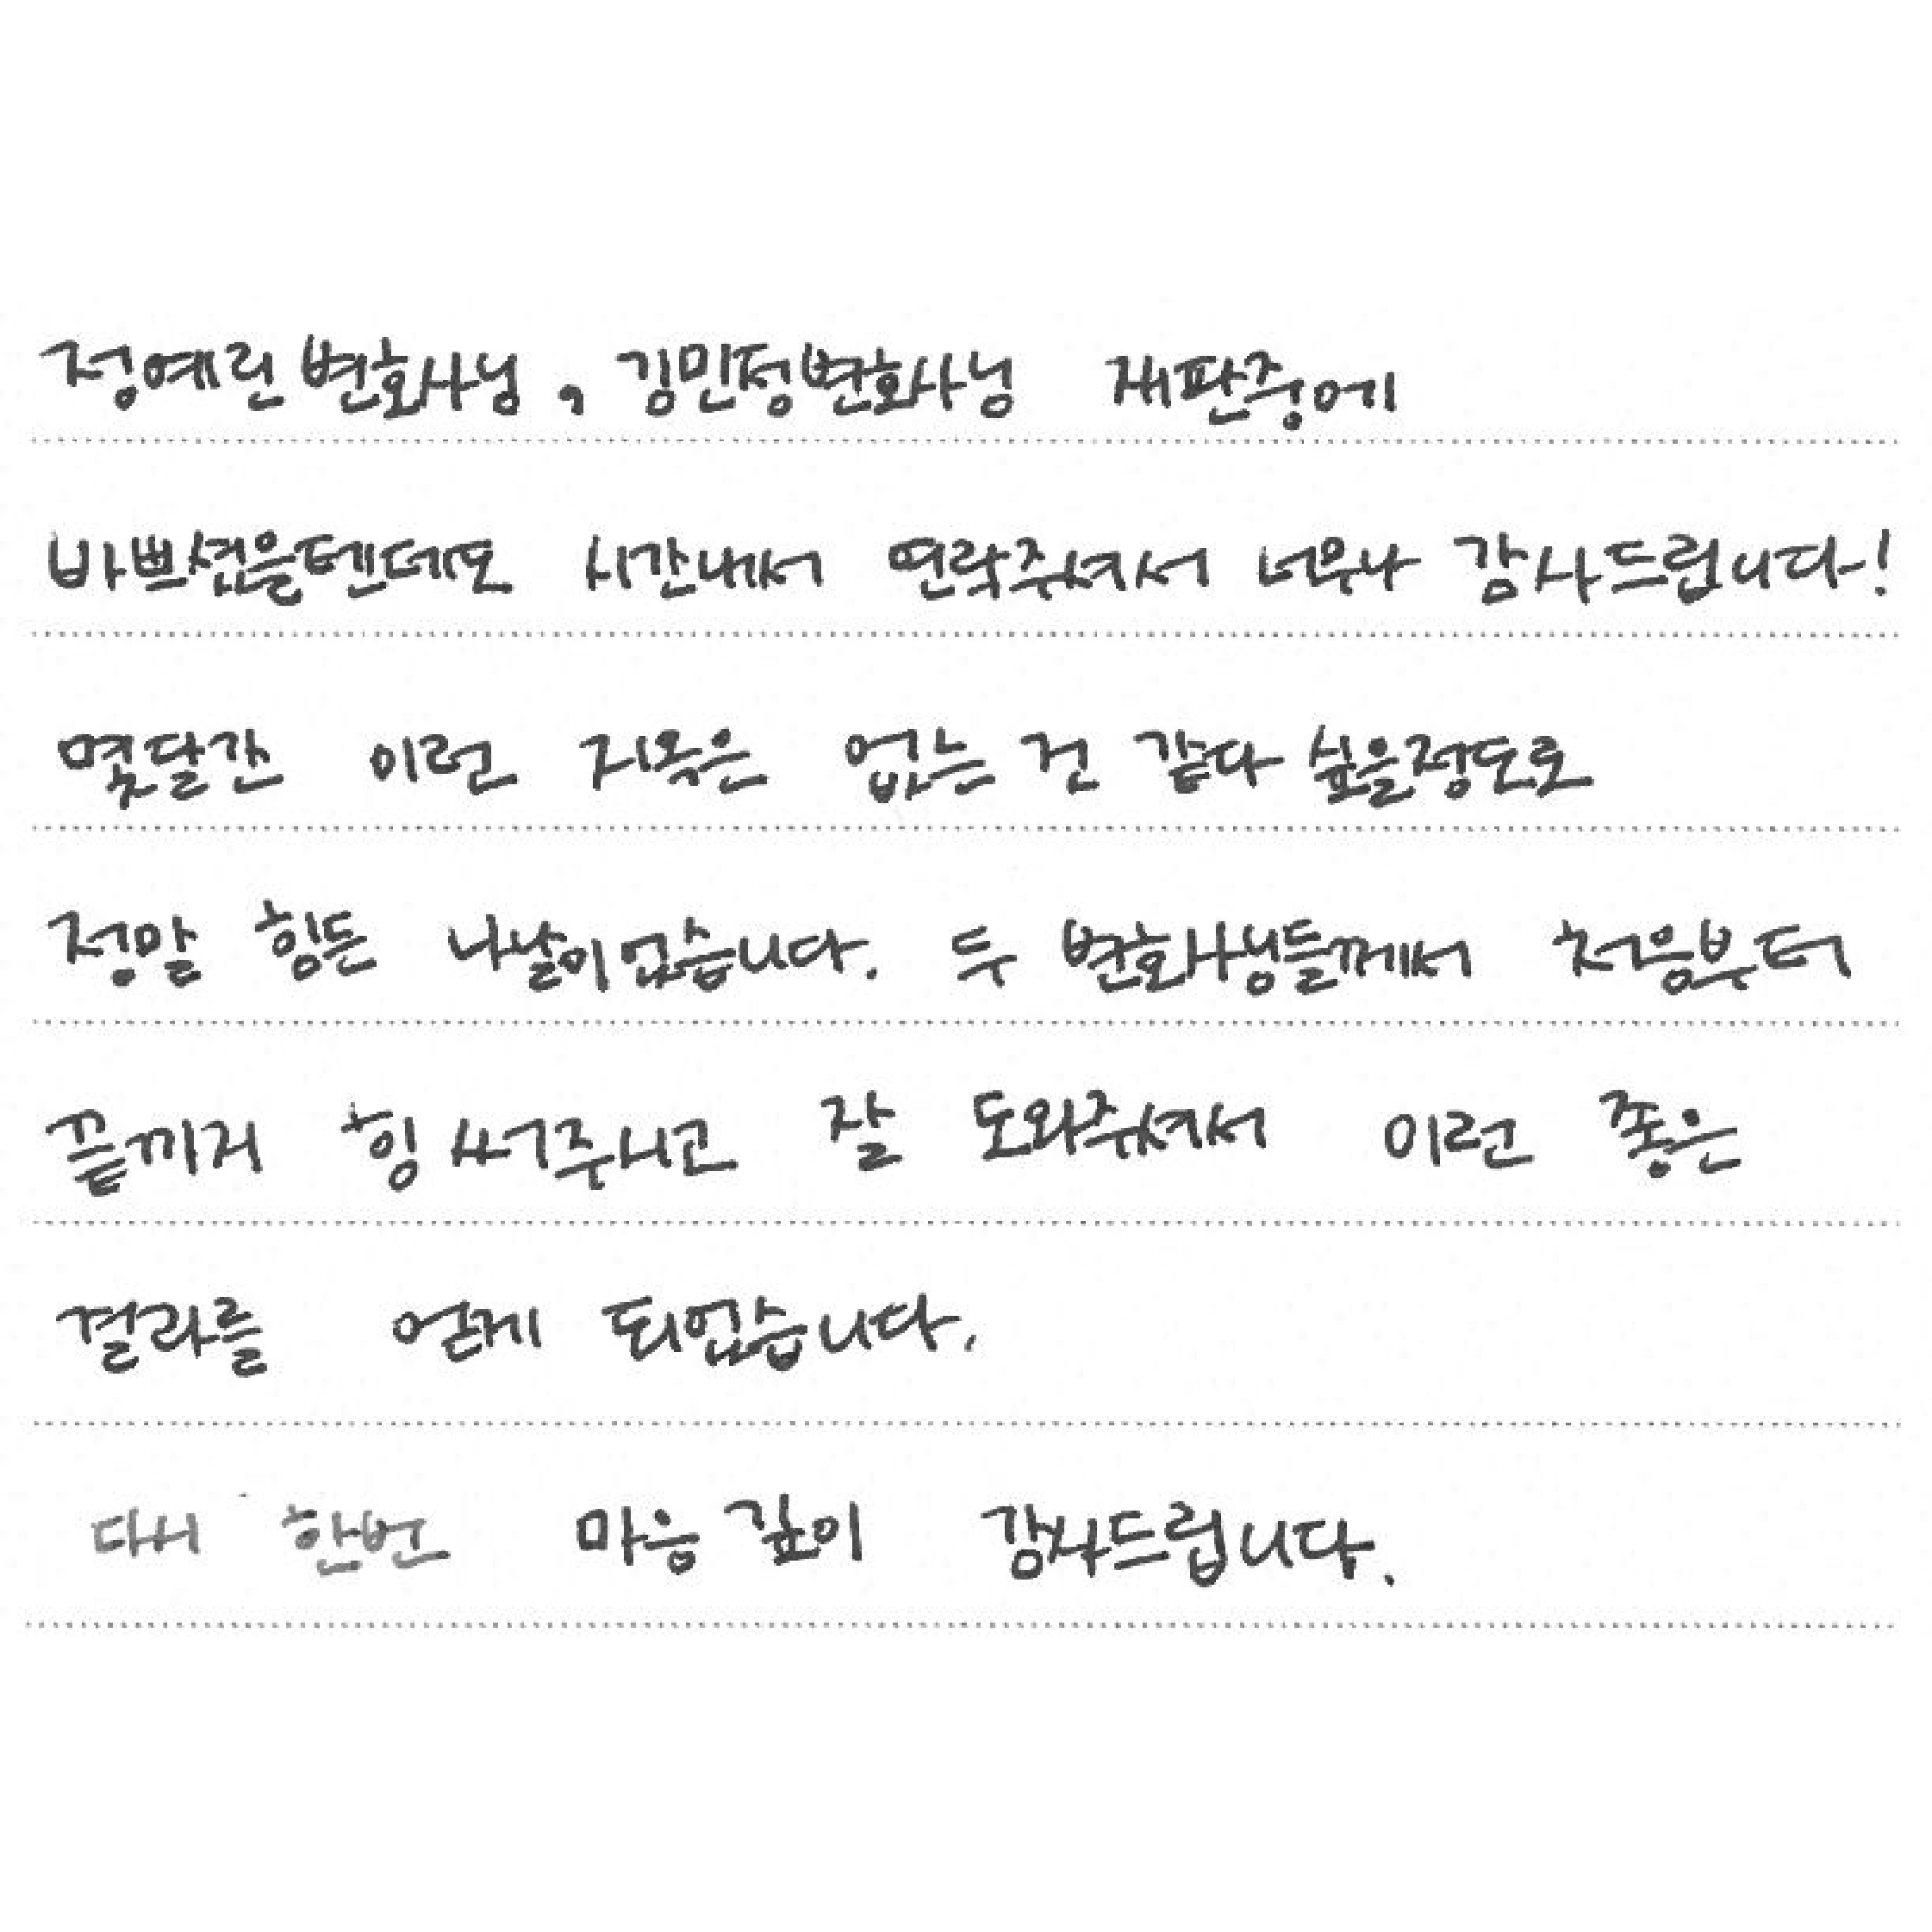 정예린 변호사님, 김민정변호사님 재판중에
바쁘셨을텐데도 시간내서 연락주셔서 너무나 감사드립니다!
몇달간 이런 지옥은 없는 건 같다 싶을정도로
정말 힘든 나날이었습니다. 두 변호사님들께서 처음부터
끝까지 힘써주시고 잘 도와주셔서 이런 좋은
결과를 얻게 되었습니다.
다시 한번 마음 깊이 감사드립니다.